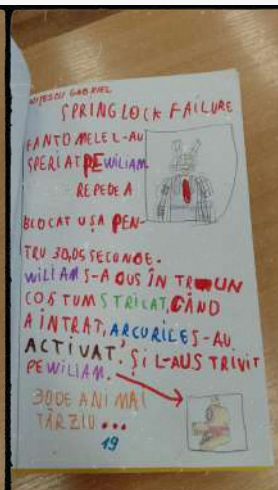 NIȚESCU GABRIEL
SPRINGLOCK FAILURE
FANTOMELE L-AU
SPERIAT PE WILIAM
REPEDE A
BLOCAT UȘA PEN-
TRU 30,05 SECONDE.
WILIAM S-A DUS ÎN TR UN
COSTUM STRICAT, CÂND
A INTRAT, ARCURILE S-AU
ACTIVAT. ȘI L-AUS TRIVIT
PE WILIAM.
30 DE ANI MAI
TÂRZIU...
19